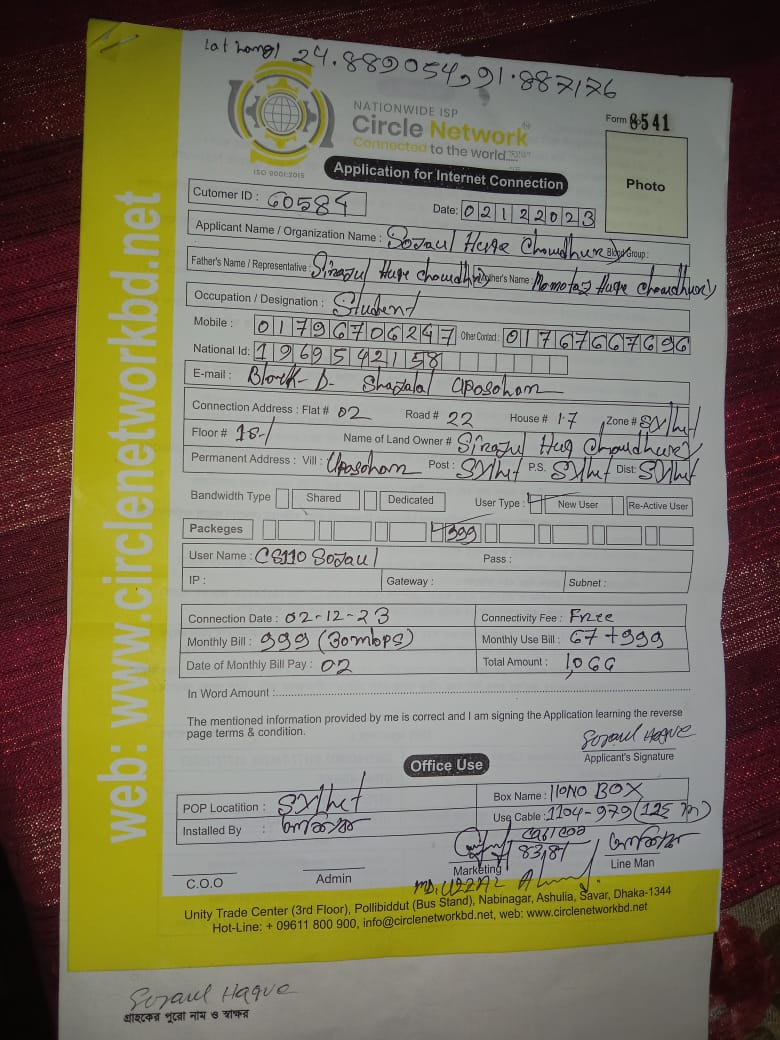 Lat Longi 24.889054, 91.887176
NATIONWIDE ISP
Circle Network
Connected to the world....
ISO 9001:2015
Form 8541
Photo
Application for Internet Connection
Cutomer ID : 60584
Date: 02122023
Applicant Name / Organization Name : Sojaul Huqe Chowdhury Blood Group :
Father's Name / Representative : Sirajul Huqe Chowdhury Mother's Name Momotaz Huqe Chowdhury
Occupation / Designation : Student
Mobile : 01796706247 Other Contact : 01767667696
National Id: 1969542158
E-mail : Block-D- Shajalal Uposohom
Connection Address : Flat # 02 Road # 22 House # 17 Zone # Sylhet
Floor # 18-1 Name of Land Owner # Sirajul Huq Chowdhury
Permanent Address : Vill : Uposohom Post : Sylhet P.S. Sylhet Dist: Sylhet
Bandwidth Type Shared Dedicated User Type : New User Re-Active User
Packeges 999
User Name : CS110 Sojaul Pass :
IP : Gateway : Subnet :
Connection Date : 02-12-23 Connectivity Fee : Free
Monthly Bill : 999 (30mbps) Monthly Use Bill : 67+999
Date of Monthly Bill Pay : 02 Total Amount : 1,066
In Word Amount :
The mentioned information provided by me is correct and I am signing the Application learning the reverse
page terms & condition.
Sojaul Haque
Applicant's Signature
Office Use
POP Locatition : Sylhet Box Name : HONO BOX
Installed By : Use Cable : 1104-979 (125 m)
83,81
C.O.O Admin Marketing Line Man
MD. UZZAL Ahmed
Unity Trade Center (3rd Floor), Pollibiddut (Bus Stand), Nabinagar, Ashulia, Savar, Dhaka-1344
Hot-Line: + 09611 800 900, info@circlenetworkbd.net, web: www.circlenetworkbd.net
web: www.circlenetworkbd.net
Sojaul Haque
গ্রাহকের পুরো নাম ও স্বাক্ষর